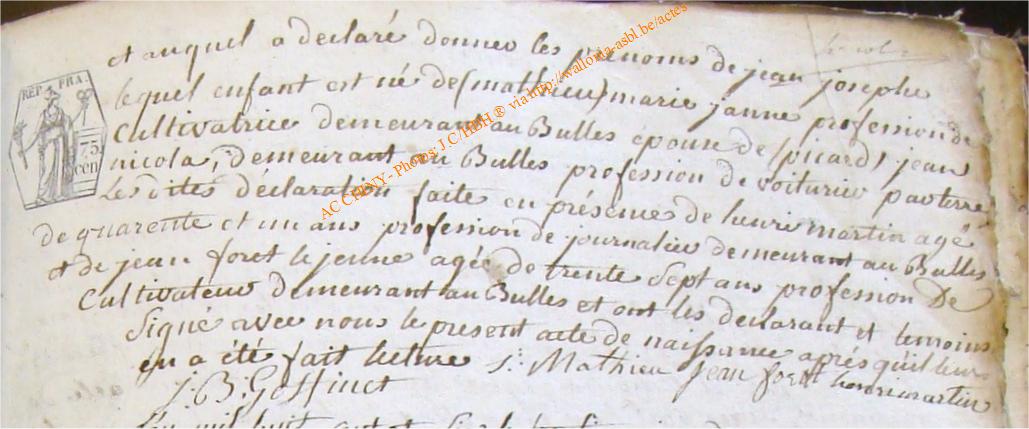 et auquel a declaré donner les prénoms de jean josephe
lequel enfant est né de (mathieu) marie janne profession de
Cultivatrice demeurant au Bulles epouse de (picard) jean
nicola, demeurant au Bulles profession de voiturier par terre
les dites déclaration faite en présence de henri martin agé
de quarente et un ans profession de journalier demeurant au Bulles
et de jean foret le jenne agée de trente sept ans profession De
Cultivateur demeurant au Bulles et ont les declarant et temoins
Signé avec nous le present acte de naissance aprés qu'il leur
en a été fait lecture S: Mathieu jean foret henri martin
J: B: Goffinet
REP. FRA.
75
cen
AC CHINY - Photos: J.C/HBH ® via http://wallonia-asbl.be/actes